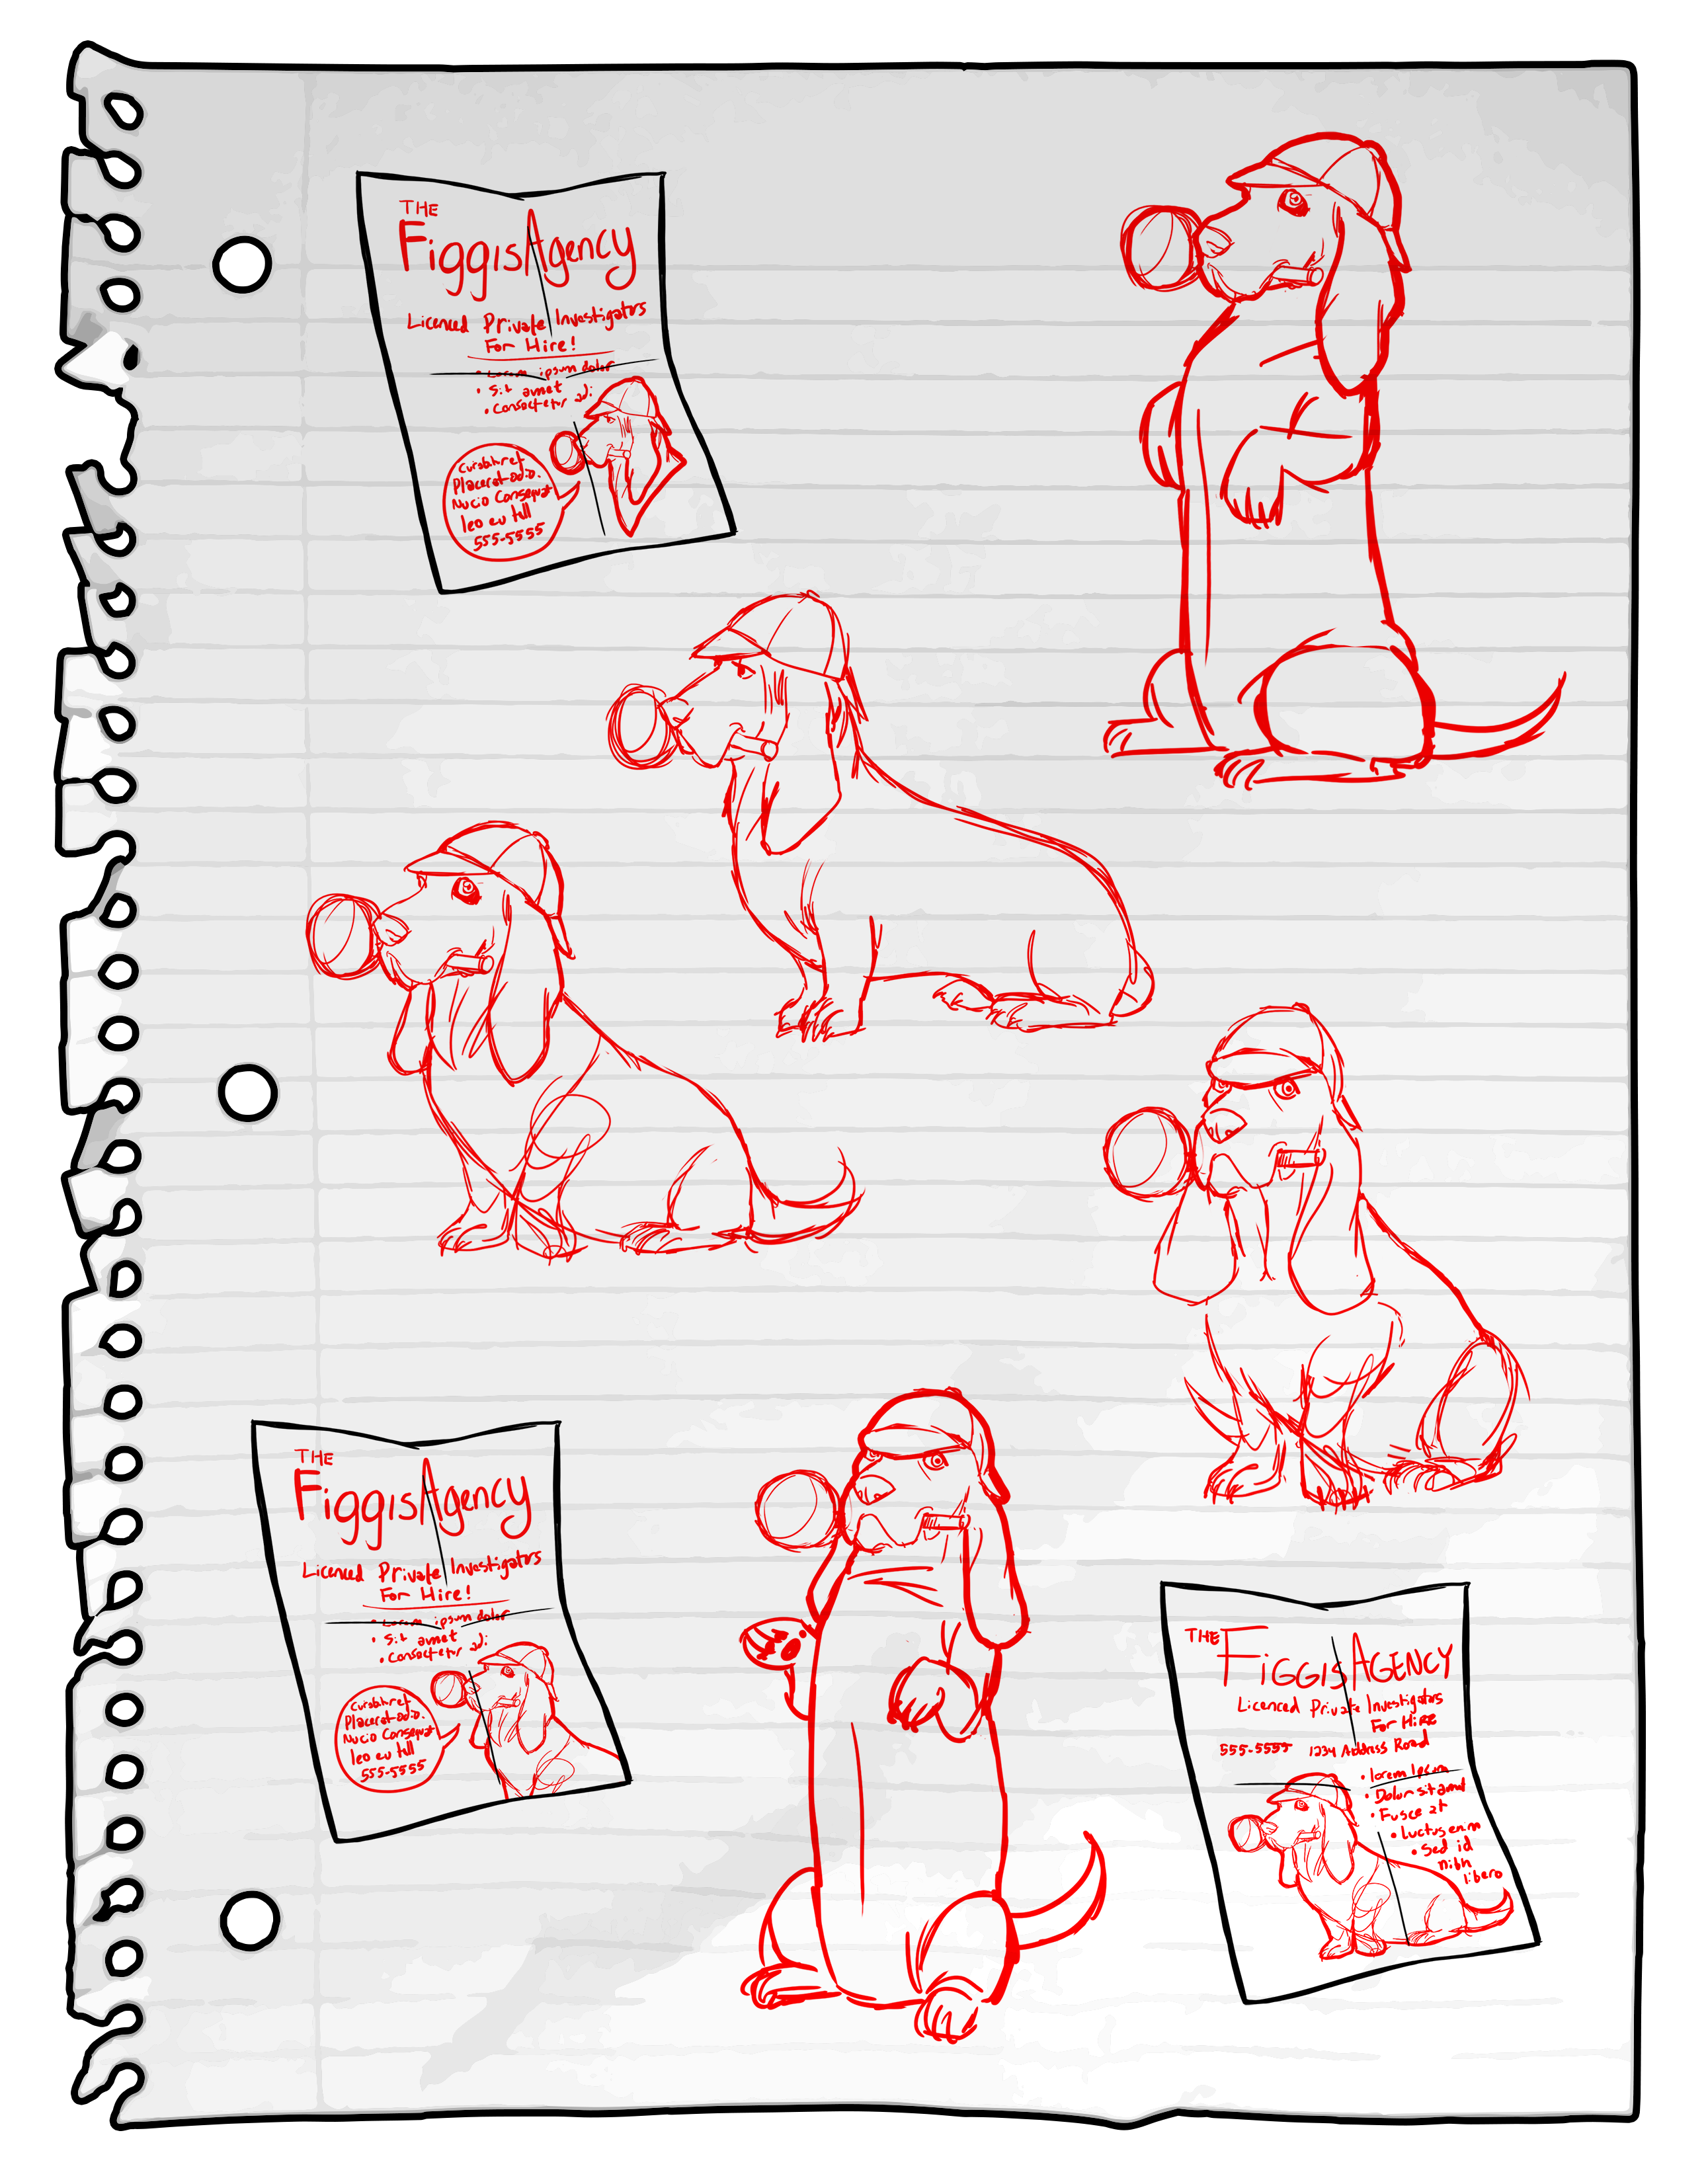 THE
Figgis Agency
Licenced Private Investigators
For Hire!
• Lorem ipsum dolor
• Sit amet
• Consectetur adi
Placerat odio.
Nucio Consequat
leo eu tell
555-5555
THE
Figgis Agency
Licenced Private Investigators
For Hire!
• Lorem ipsum dolor
• Sit amet
• Consectetur adi
Placerat odio.
Nucio Consequat
leo eu tell
555-5555
THE FIGGIS AGENCY
Licenced Private Investigators
For HIRE
555-5555 1234 Address Road
• lorem Ipsum
• Dolor sit amet
• Fusce at
• Luctus enim
• Sed id
nibh
libero